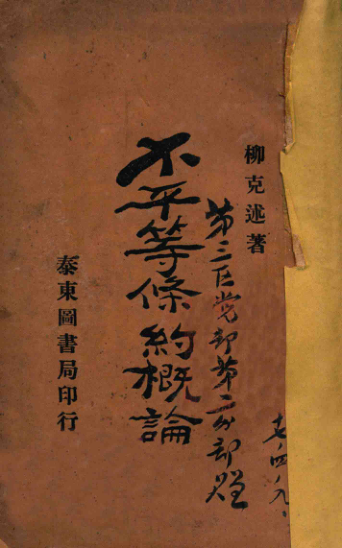 柳克述著
第三区党部第二分部贈
不平等條約概論
泰東圖書局印行